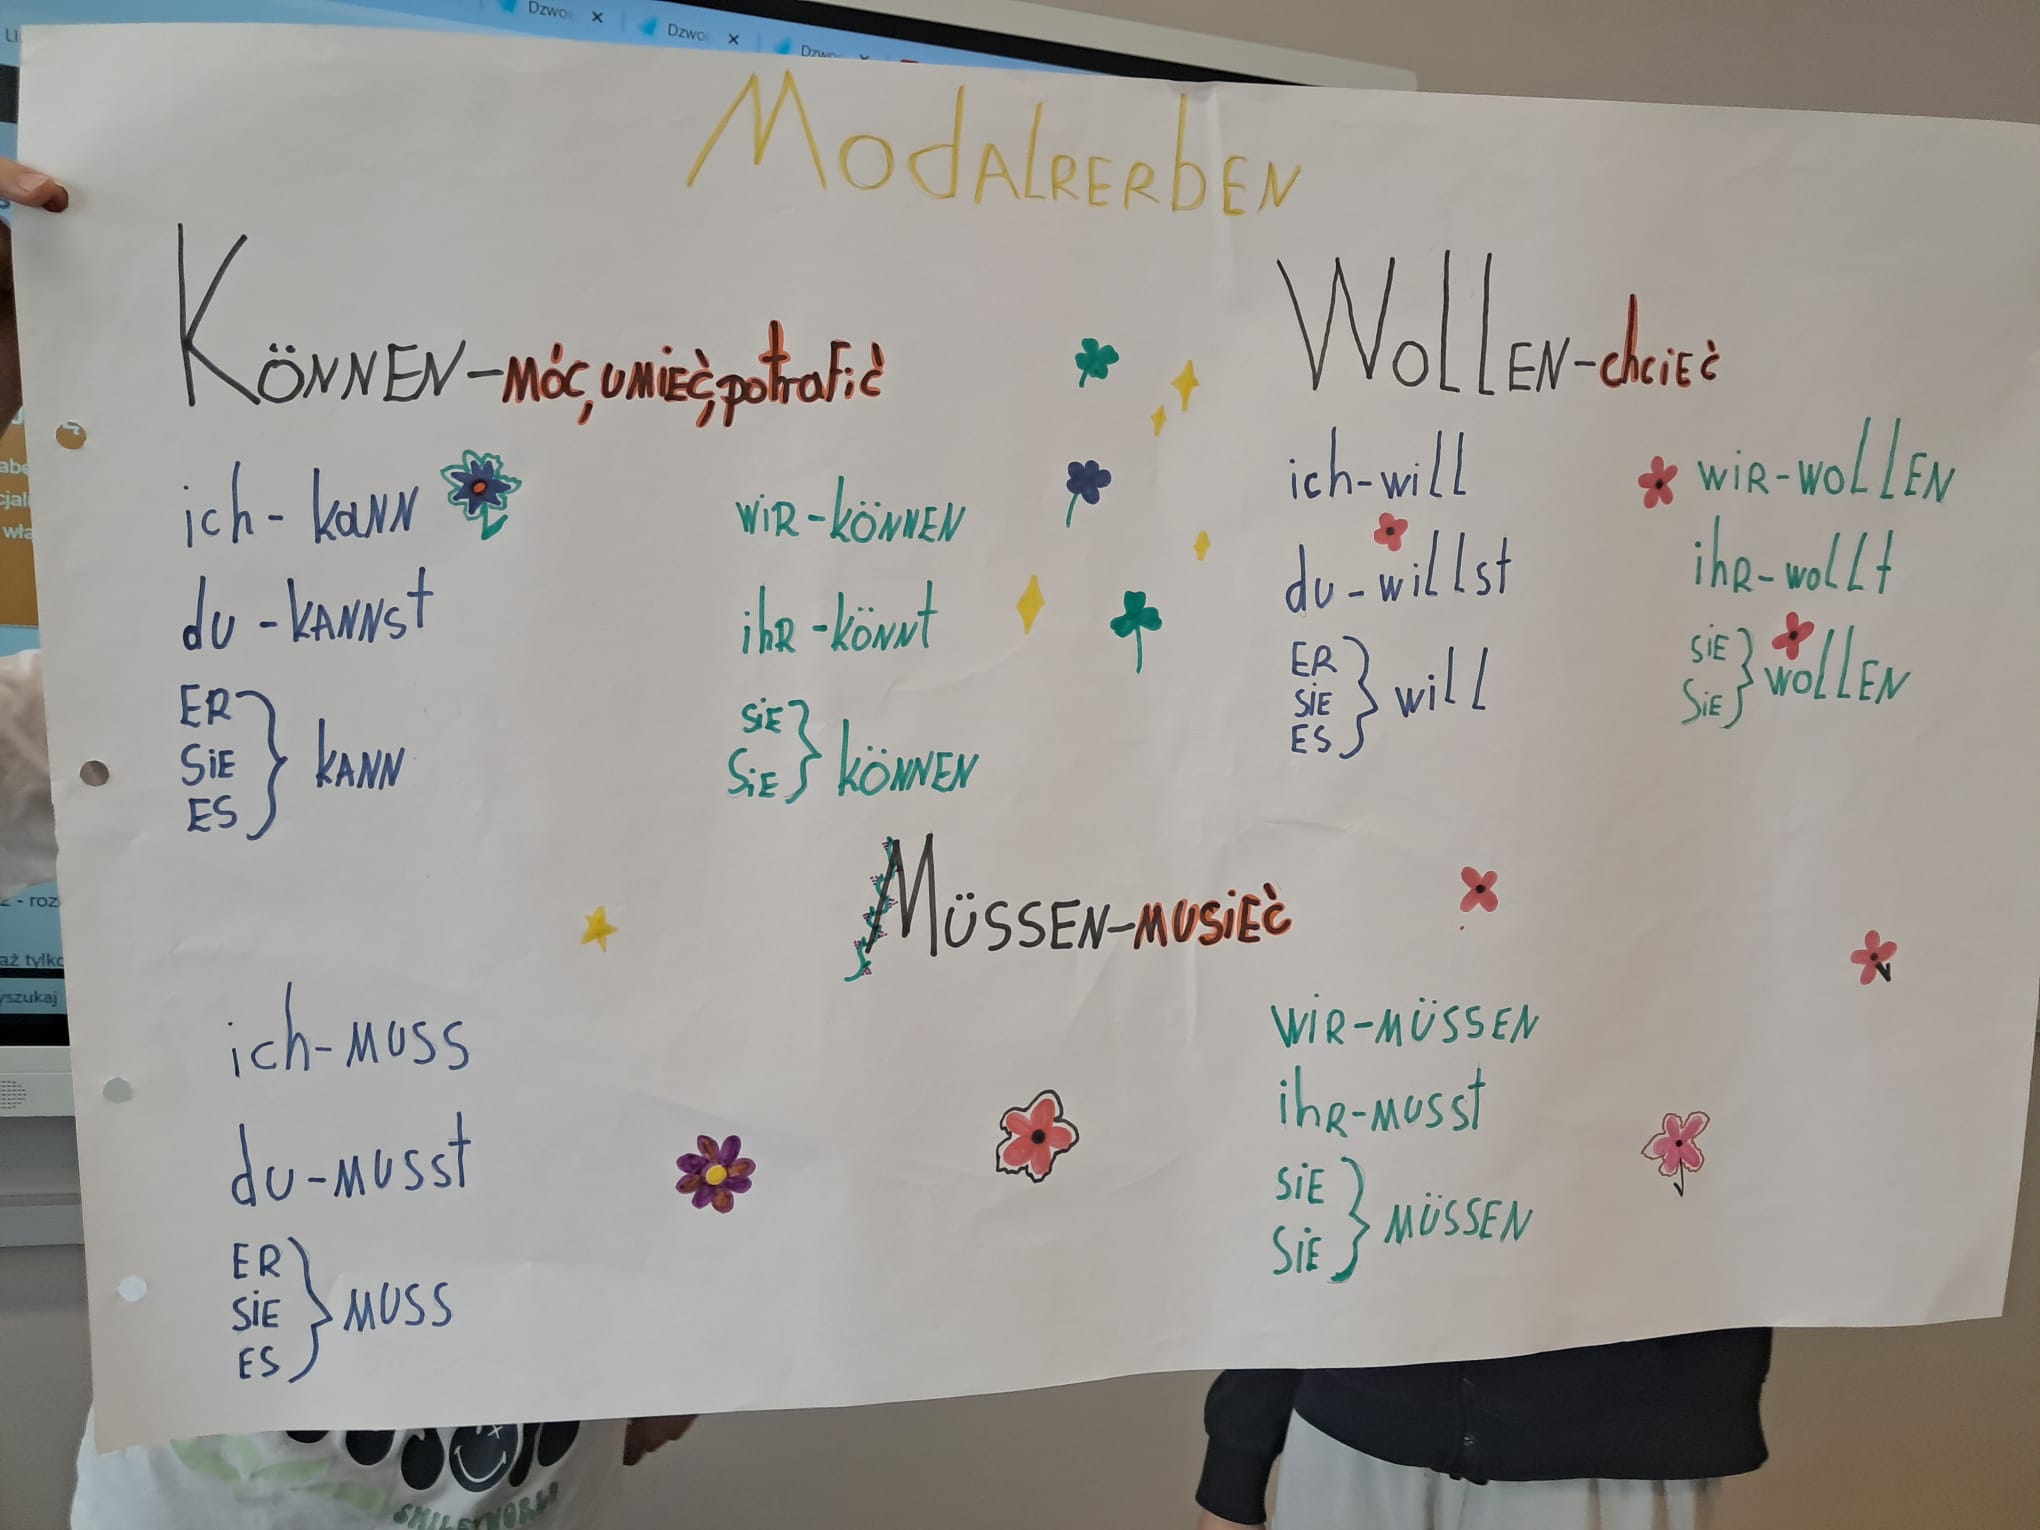 Dzwo
Dzwo
Dzwo
ModALRERbEN
KÖNNEN-móc, umieć, potrafić
ich- kann
du -kannst
ER
SiE
ES
kann
wiR-können
ihR-könnt
SiE
SiE
können
WollEN-chcieć
ich-will
du-willst
ER
SiE
ES
will
wiR-wollEN
ihR-wollt
SiE
SiE
wollEN
MÜSSEN-musieć
ich-muss
du-musst
ER
SiE
ES
muss
wiR-müssen
ihR-musst
SiE
SiE
müssen
aż tylko
yszukaj